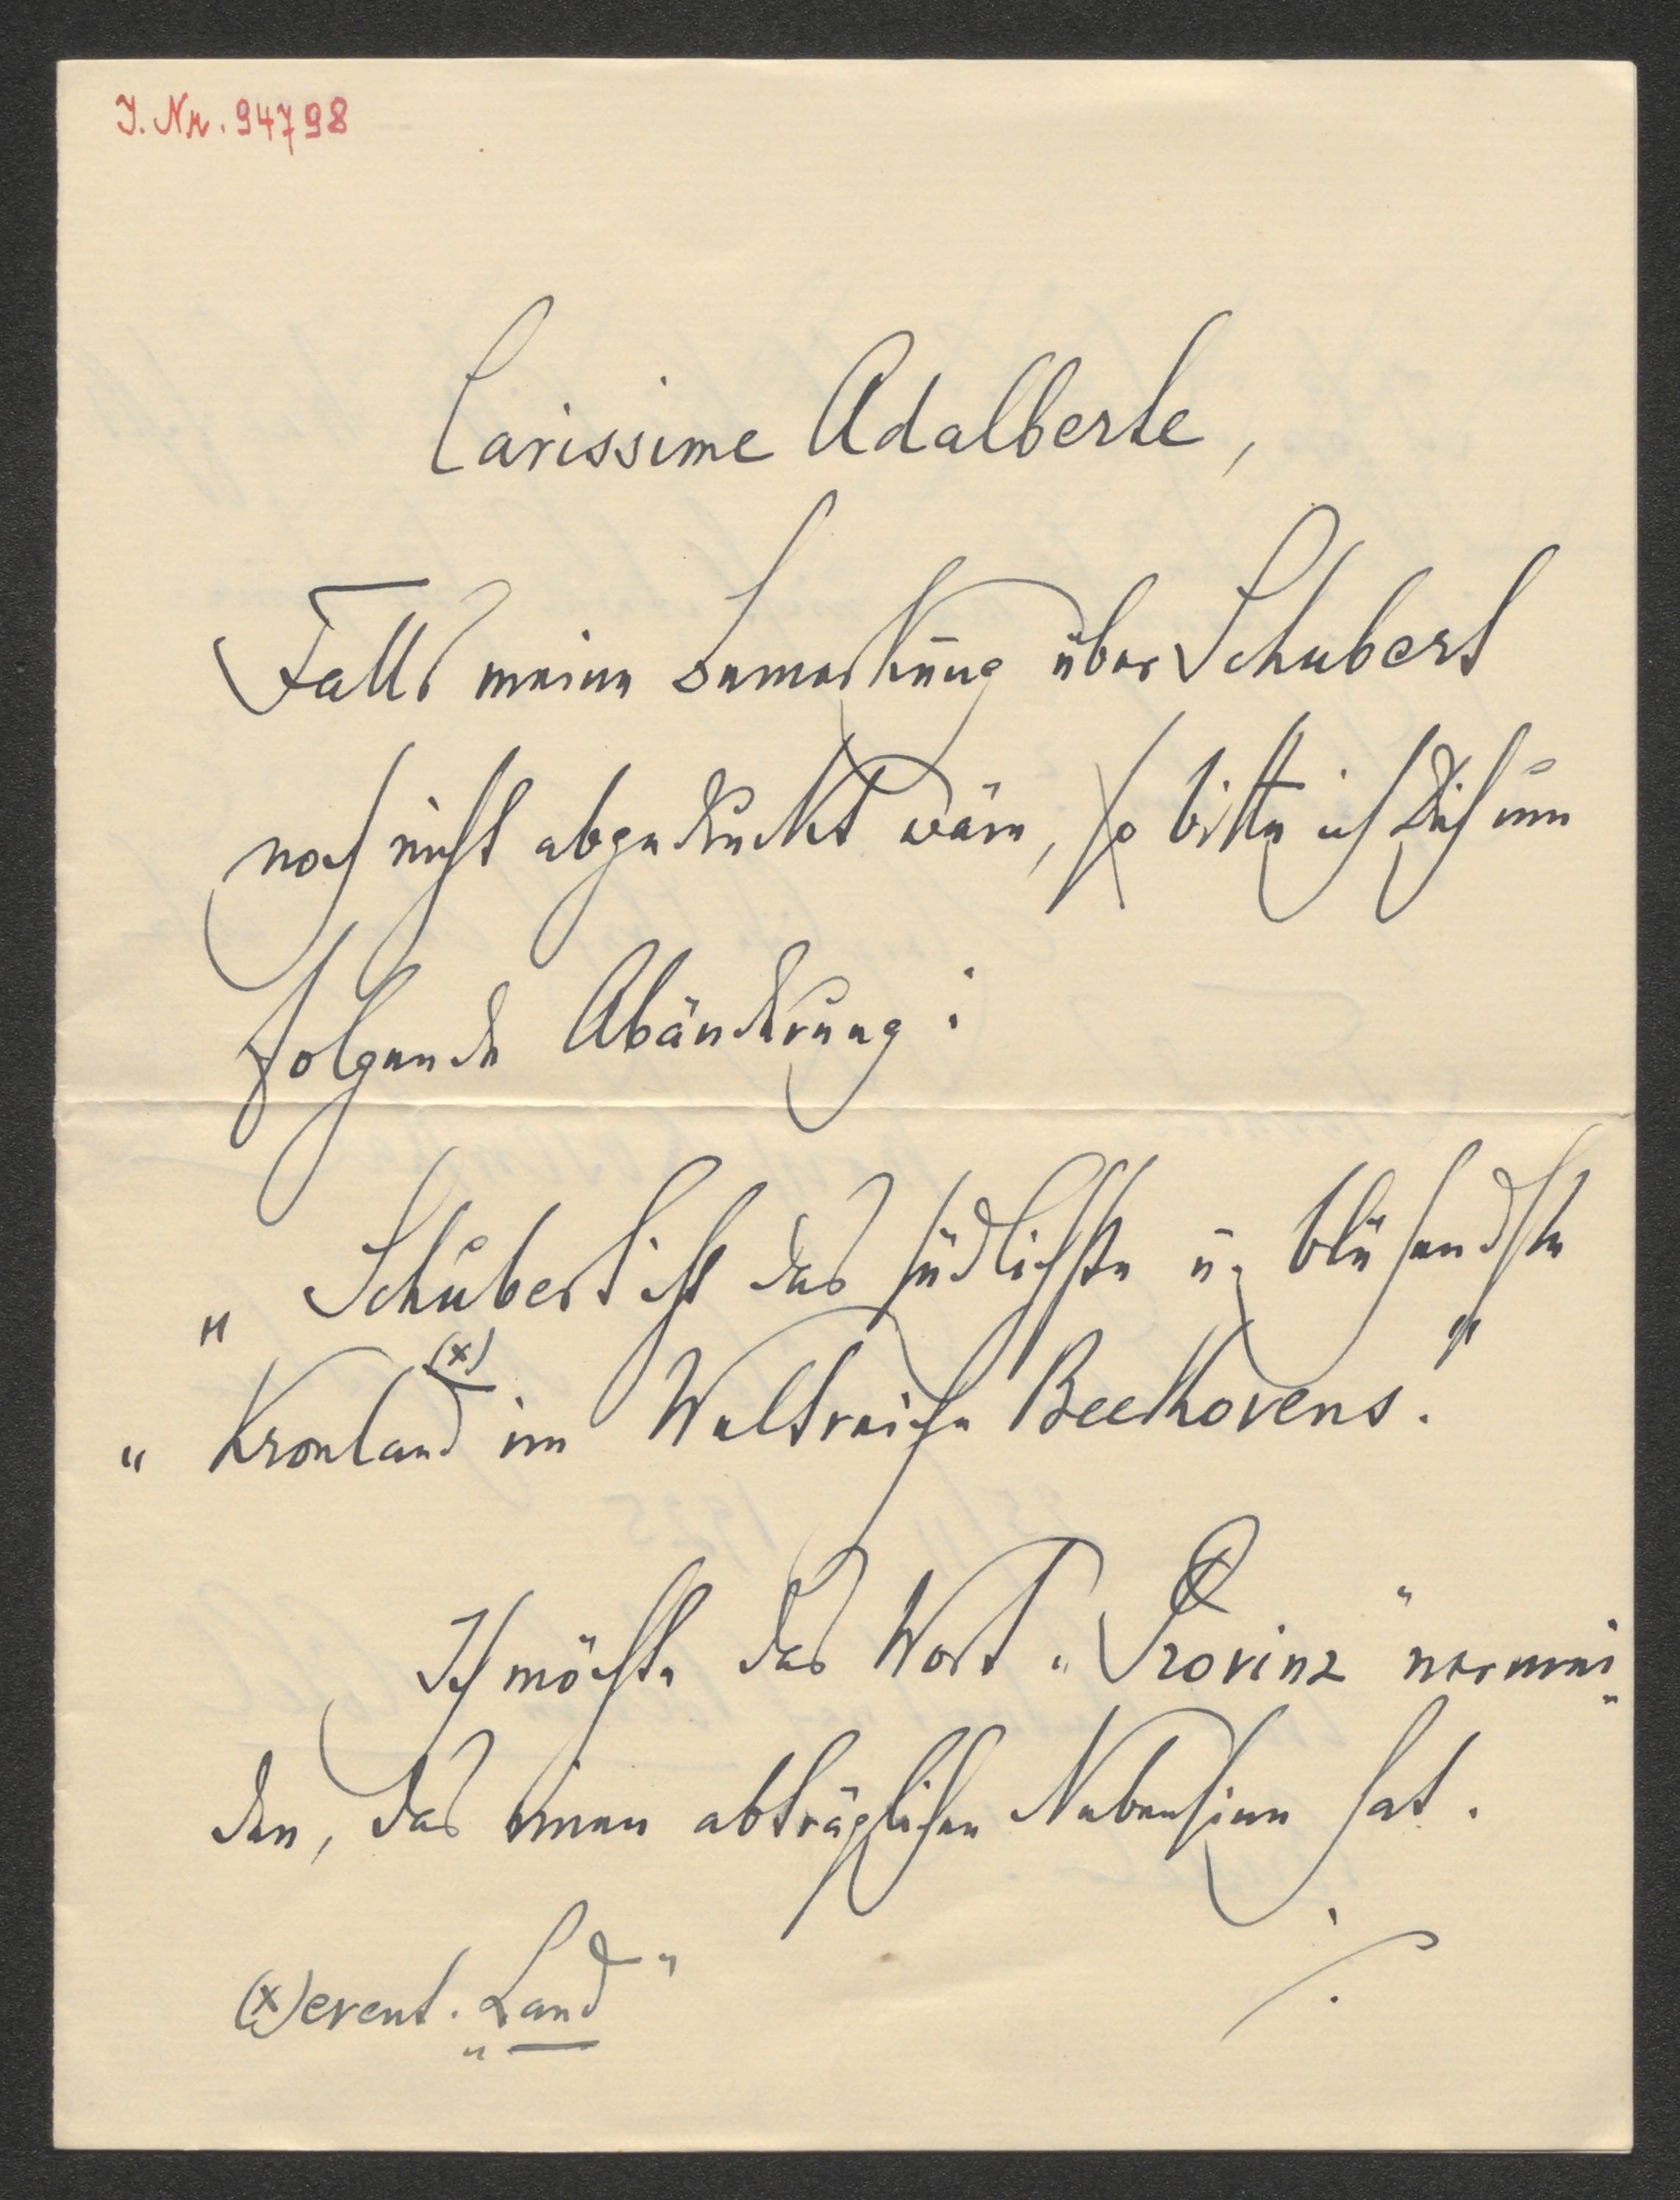 I. Nr. 94798
Carissime Adalberte,
Falls meine Bemerkung über Schubert
noch nicht abgedruckt wäre, so bitte ich Dich um
folgende Abänderung:
„Schubert ist das südlichste u. blühendste
„Kronland (x) im Weltreiche Beethovens."
Ich möchte das Wort „Provinz" vermei„
den, das einen abträglichen Nebensinn hat.
./.
(x) event. „Land"